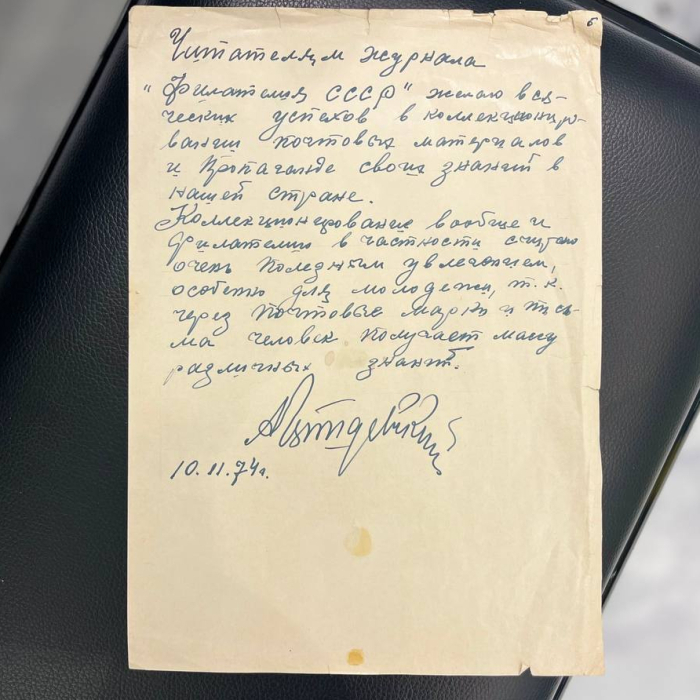 6
Читателям журнала
"Филателия СССР" желаю вся-
ческих успехов в коллекциониро-
вании почтовых материалов
и пропаганде своих знаний в
нашей стране.
Коллекционирование вообще и
филателию в частности считаю
очень полезным увлечением,
особенно для молодежи, т.к.
через почтовые марки и пись-
ма человек получает массу
различных знаний.
10.11.74г.